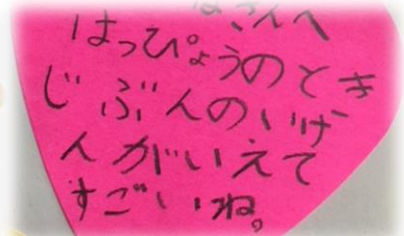 さんへ
はっぴょうのとき
じぶんのいけ
んがいえて
すごいね。